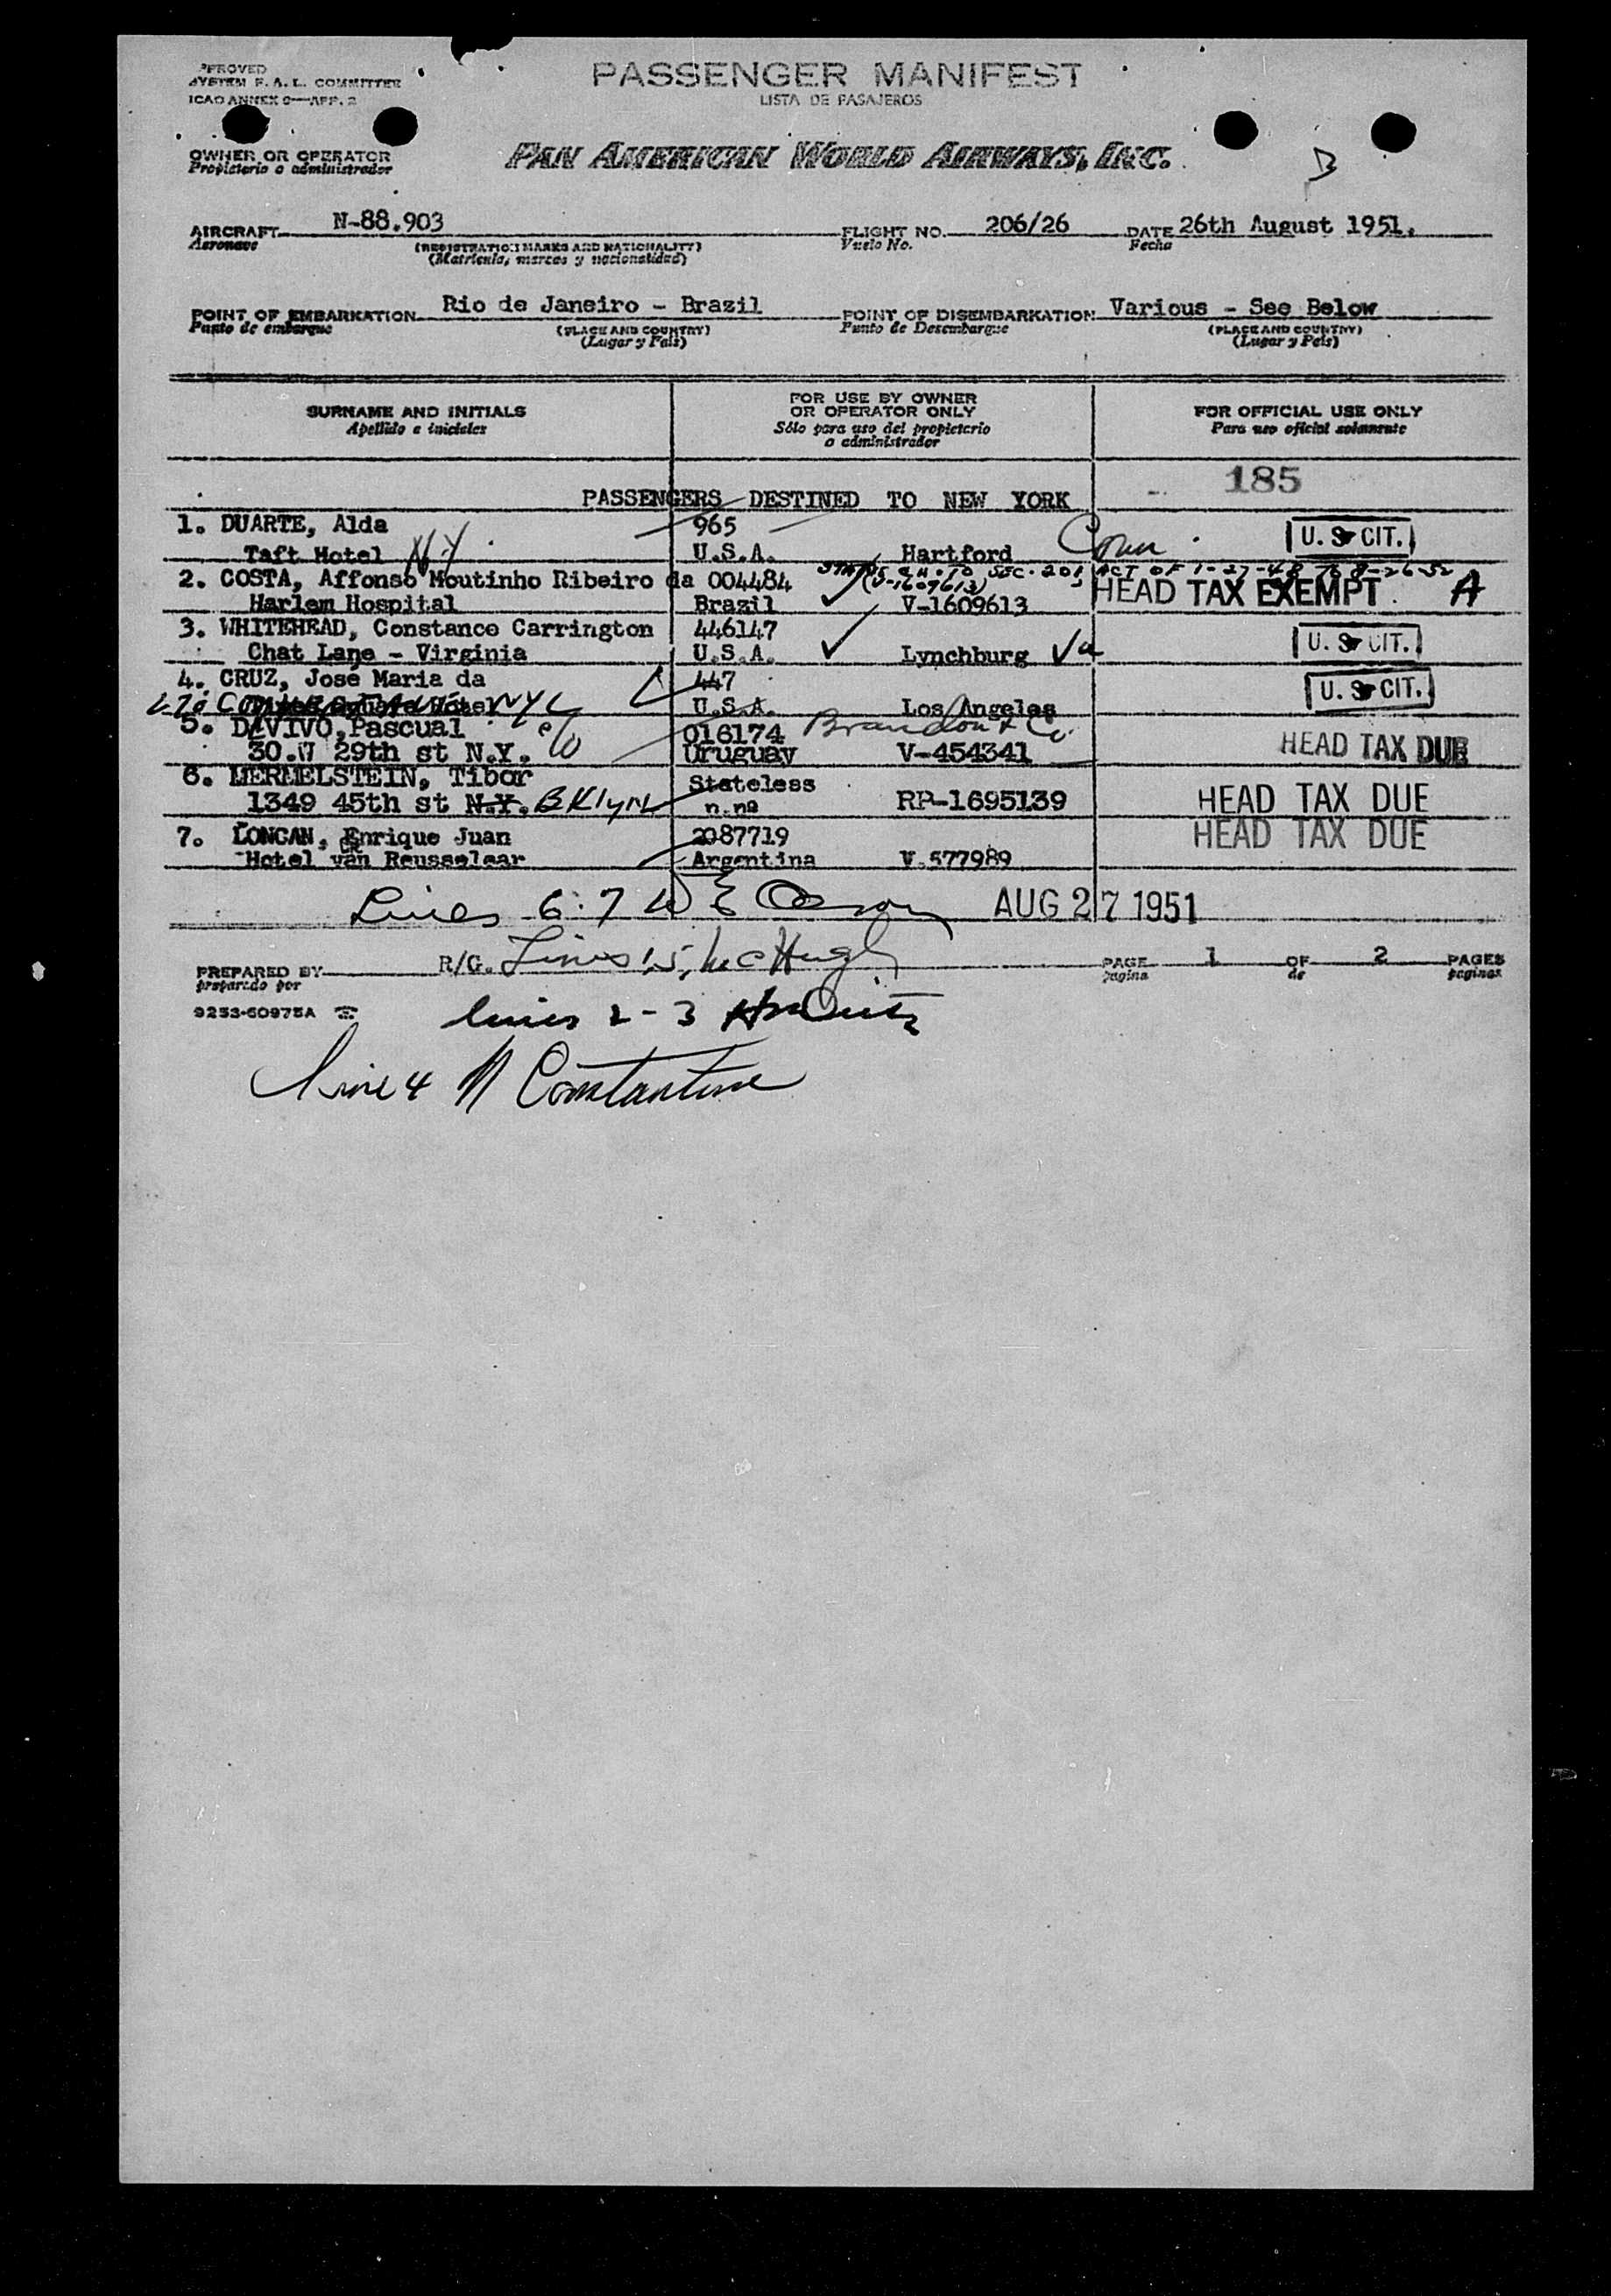 PROVED
SYSTEM F. A. L. COMMITTEE
ICAO ANNEX 9—APP. 2
PASSENGER MANIFEST
LISTA DE PASAJEROS
OWNER OR OPERATOR
Propietario o administrador
PAN AMERICAN WORLD AIRWAYS, INC.
B
AIRCRAFT N-88.903 FLIGHT NO. 206/26 DATE 26th August 1951.
Aeronave (REGISTRATION MARKS AND NATIONALITY) Vuelo No. Fecha
(Matricula, marcas y nacionalidad)
POINT OF EMBARKATION Rio de Janeiro - Brazil POINT OF DISEMBARKATION Various - See Below
Punto de embarque (PLACE AND COUNTRY) Punto de Desembarque (PLACE AND COUNTRY)
(Lugar y Pais) (Lugar y Pais)
SURNAME AND INITIALS
Apellido e iniciales
FOR USE BY OWNER
OR OPERATOR ONLY
Sólo para uso del propietario
o administrador
FOR OFFICIAL USE ONLY
Para uso oficial solamente
185
PASSENGERS DESTINED TO NEW YORK
1. DUARTE, Alda 965 U. S. CIT.
Taft Hotel N.Y. U.S.A. Hartford Conn.
2. COSTA, Affonso Moutinho Ribeiro da 004484 SEC. 201 ACT OF 1-27-48 TO 8-26-52
(V-1609613)
Harlem Hospital Brazil V-1609613 HEAD TAX EXEMPT. A
3. WHITEHEAD, Constance Carrington 446147 U. S. CIT.
Chat Lane - Virginia U.S.A. Lynchburg Va
4. CRUZ, José Maria da 447 U. S. CIT.
Hotel NYC U.S.A. Los Angeles
5. DAVIVO, Pascual c/o 016174 Brandon & Co.
30.W 29th st N.Y. Uruguay V-454341 HEAD TAX DUE
6. MERMELSTEIN, Tibor Stateless
1349 45th st N.Y. BKlyn n.nª RP-1695139 HEAD TAX DUE
7. LONCAN, Enrique Juan 2087719 HEAD TAX DUE
Hotel van Reusselear Argentina V.577989
Lines 6:7 W E AUG 27 1951
PREPARED BY R/G. Lines 1, 5, McHugh PAGE 1 OF 2 PAGES
preparado por pagina de paginas
9253-60975A
lines 2-3
Line 4 M Constantine